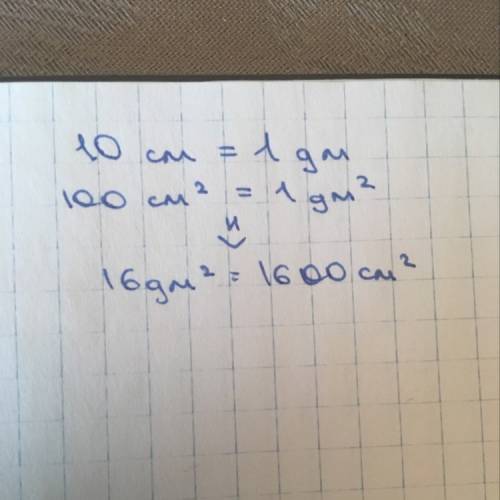 10 см = 1 дм
100 см² = 1 дм²
16 дм² = 1600 см²